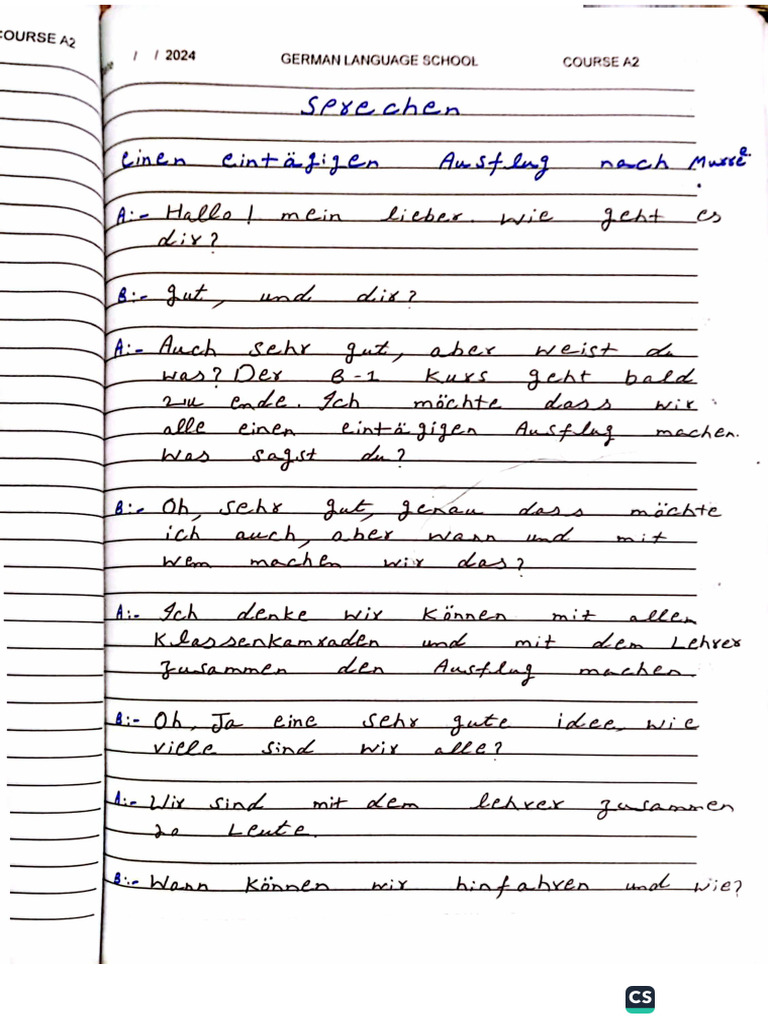 COURSE A2
/ / 2024 GERMAN LANGUAGE SCHOOL COURSE A2
Sprechen
Einen eintägigen Ausflug nach Murree
A:- Hallo! mein lieber. wie geht es
dir?
B:- gut, und dir?
A:- Auch sehr gut, aber weist du
was? Der B-1 Kurs geht bald
zu ende. Ich möchte dass wir
alle einen eintägigen Ausflug machen.
Was sagst du?
B:- Oh, sehr gut, genau dass möchte
ich auch, aber wann und mit
wem machen wir das?
A:- Ich denke wir können mit allen
Klassenkamraden und mit dem Lehrer
zusammen den Ausflug machen.
B:- Oh, Ja eine sehr gute idee, wie
viele sind wir alle?
A:- Wir sind mit dem lehrer zusammen
20 Leute.
B:- Wann können wir hinfahren und wie?
CS